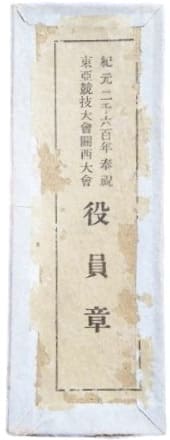 紀元二千六百年奉祝
東亞競技大會關西大會
役員章